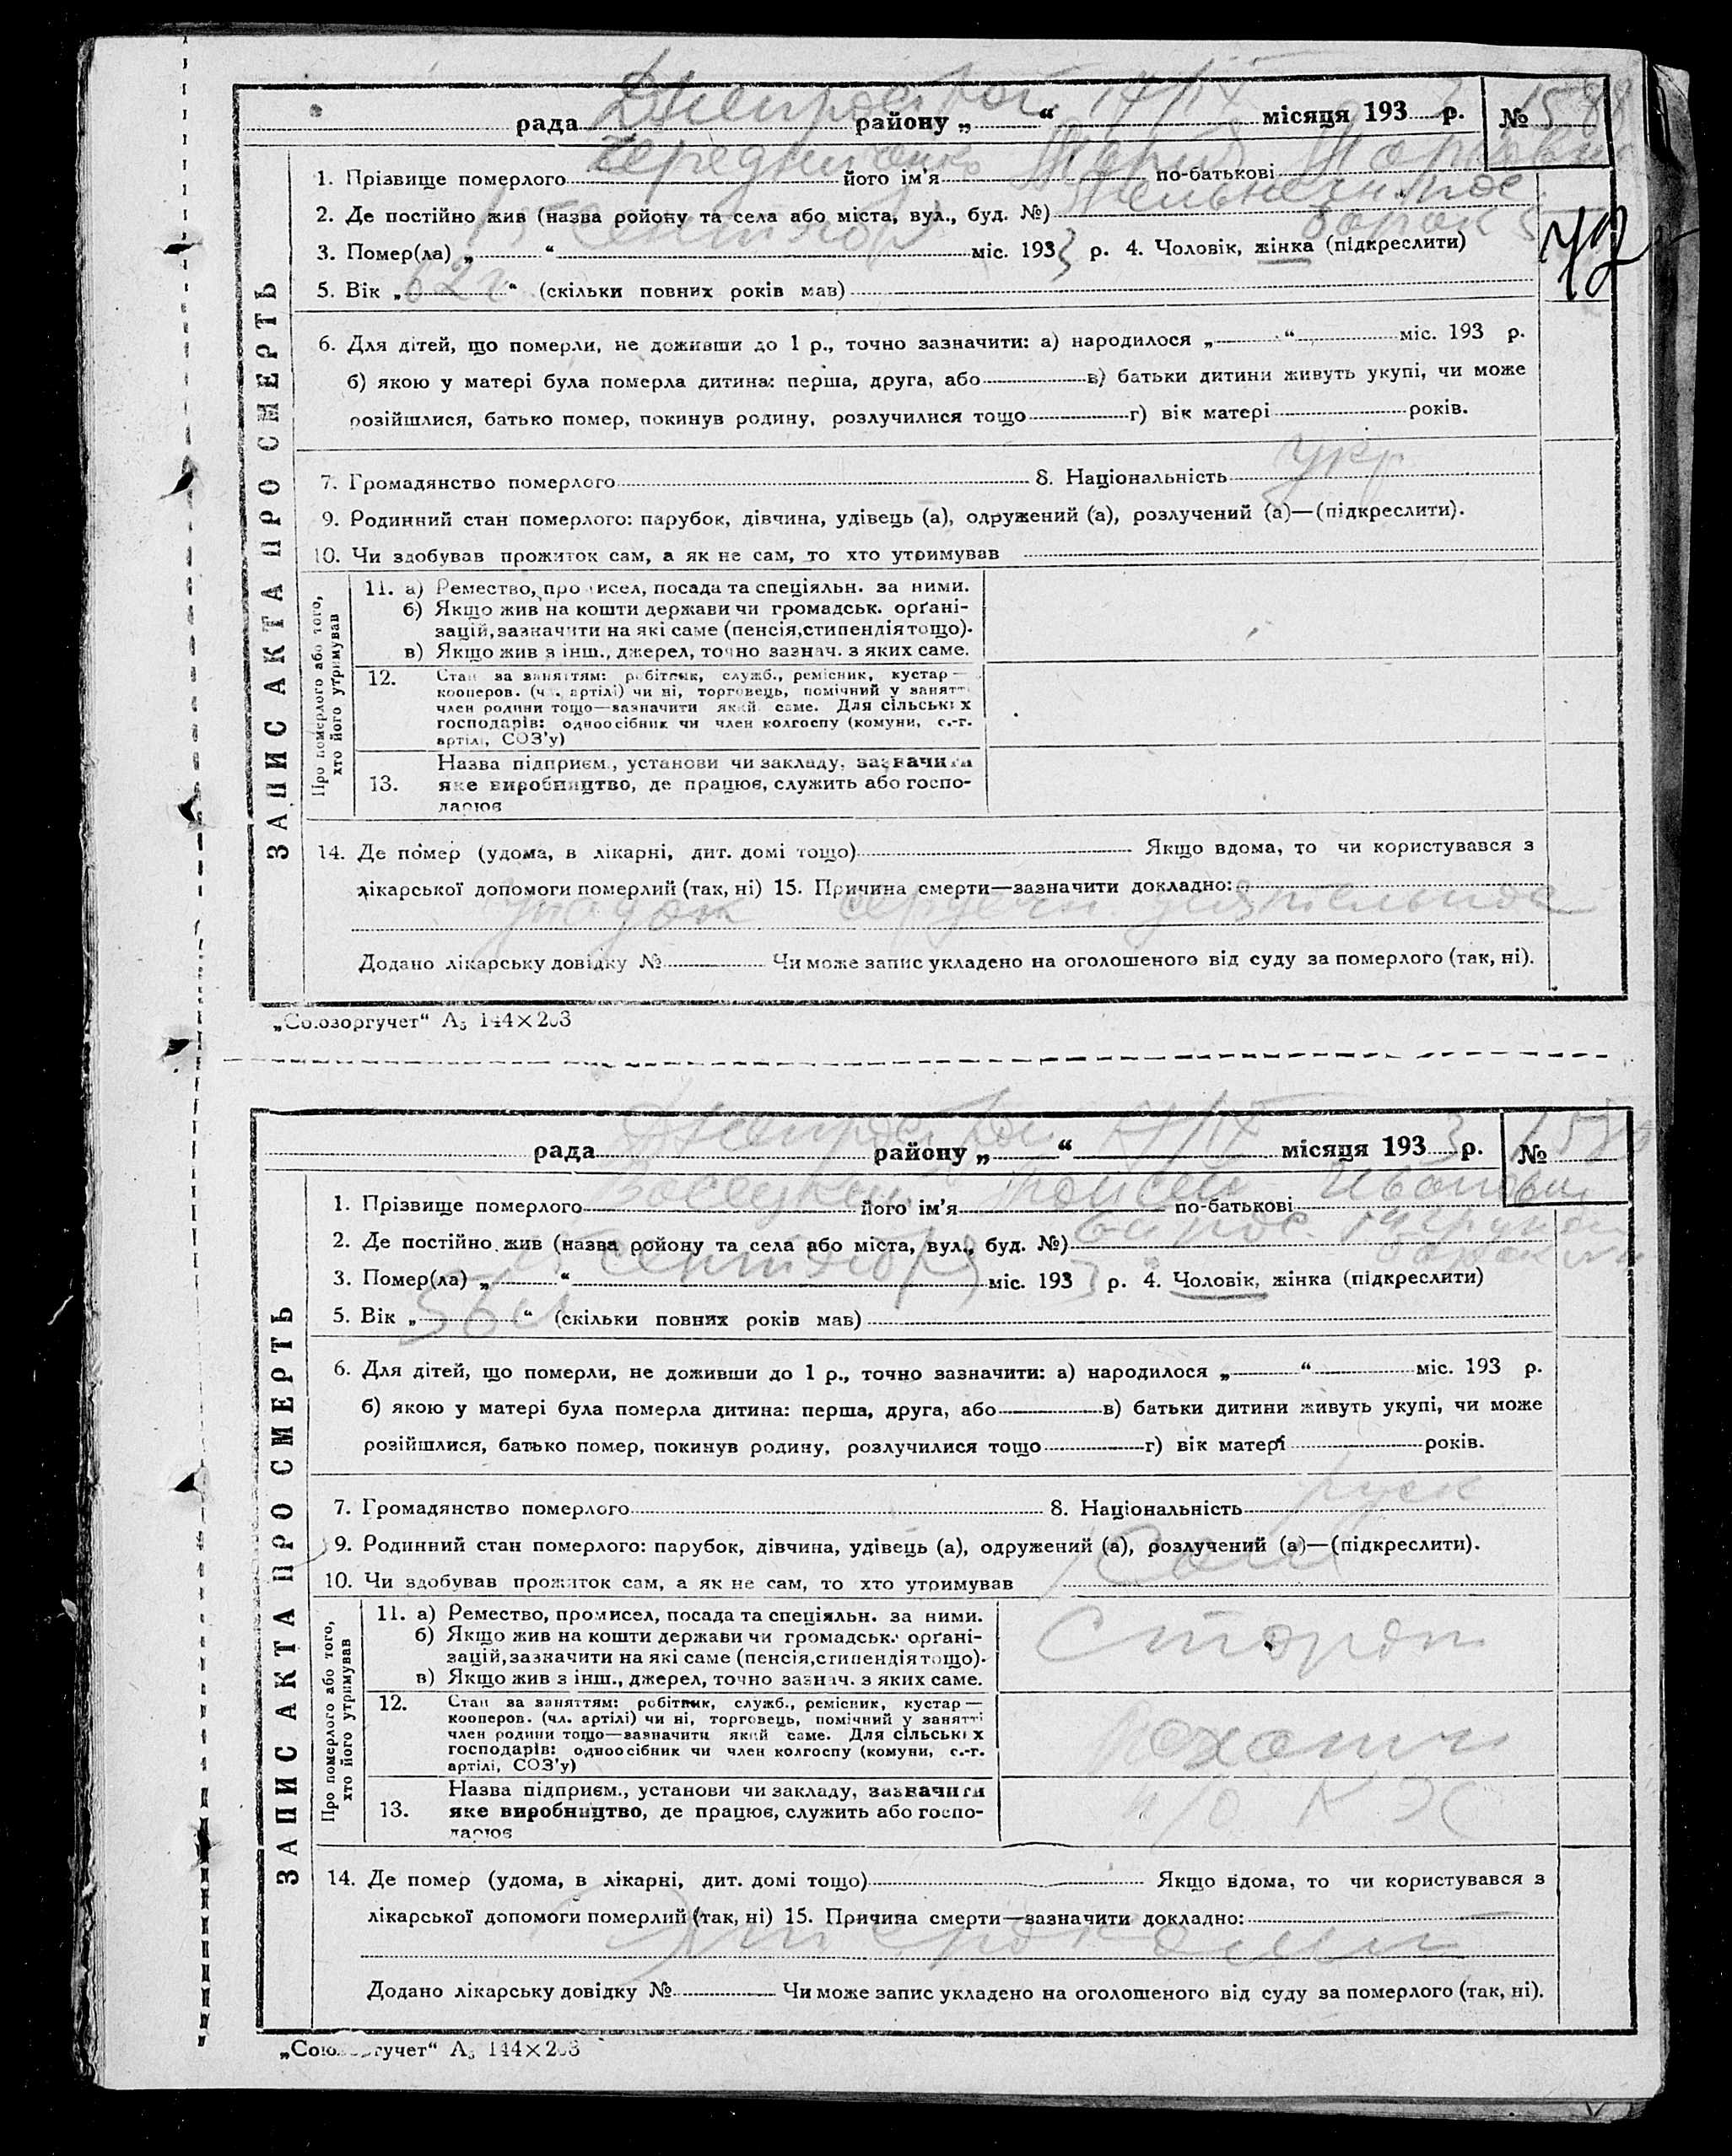 Днепрострой 17/IX
рада району „ “ місяця 193 3 р. № 1588
1. Прізвище померлого Чередниченко його ім'я Мария по-батькові
2. Де постійно жив (назва ройону та села або міста, вул., буд. №)
барак 5
3. Помер(ла) „15“ сентября міс. 1933 р. 4. Чоловік, жінка (підкреслити)
42
5. Вік „62 г“ (скільки повних років мав)
6. Для дітей, що померли, не доживши до 1 р., точно зазначити: а) народилося „ “ міс. 193 р.
б) якою у матері була померла дитина: перша, друга, або в) батьки дитини живуть укупі, чи може
розійшлися, батько помер, покинув родину, розлучилися тощо г) вік матері років.
7. Громадянство померлого 8. Національність укр
9. Родинний стан померлого: парубок, дівчина, удівець (а), одружений (а), розлучений (а)—(підкреслити).
10. Чи здобував прожиток сам, а як не сам, то хто утримував
ЗАПИС АКТА ПРО СМЕРТЬ
Про померлого або того, хто його утримував
11. а) Ремество, промисел, посада та спеціяльн. за ними.
б) Якщо жив на кошти держави чи громадськ. орґані-
зацій, зазначити на які саме (пенсія, стипендія тощо).
в) Якщо жив з інш., джерел, точно зазнач. з яких саме.
12. Стан за заняттям: робітник, служб., ремісник, кустар—
кооперов. (чл. артілі) чи ні, торговець, помічний у занятті
член родини тощо—зазначити який саме. Для сільських
господарів: одноосібник чи член колгоспу (комуни, с.-г.
артілі, СОЗ'у)
Назва підприєм., установи чи закладу, зазначити
13. яке виробництво, де працює, служить або госпо-
дарює
14. Де помер (удома, в лікарні, дит. домі тощо) Якщо вдома, то чи користувався з
лікарської допомоги померлий (так, ні) 15. Причина смерти—зазначити докладно:
упадок сердечн деятельнос
Додано лікарську довідку № Чи може запис укладено на оголошеного від суду за померлого (так, ні).
„Союзоргучет“ А5 144×203
Днепрострой 17/IX
рада району „ “ місяця 193 3 р. №
1. Прізвище померлого його ім'я Моисей по-батькові Иванович
2. Де постійно жив (назва ройону та села або міста, вул., буд. №)
барак
3. Помер(ла) „15“ сентября міс. 1933 р. 4. Чоловік, жінка (підкреслити)
5. Вік „56 л“ (скільки повних років мав)
6. Для дітей, що померли, не доживши до 1 р., точно зазначити: а) народилося „ “ міс. 193 р.
б) якою у матері була померла дитина: перша, друга, або в) батьки дитини живуть укупі, чи може
розійшлися, батько помер, покинув родину, розлучилися тощо г) вік матері років.
7. Громадянство померлого 8. Національність руск
9. Родинний стан померлого: парубок, дівчина, удівець (а), одружений (а), розлучений (а)—(підкреслити).
10. Чи здобував прожиток сам, а як не сам, то хто утримував сам
ЗАПИС АКТА ПРО СМЕРТЬ
Про померлого або того, хто його утримував
11. а) Ремество, промисел, посада та спеціяльн. за ними.
б) Якщо жив на кошти держави чи громадськ. орґані-
зацій, зазначити на які саме (пенсія, стипендія тощо).
в) Якщо жив з інш., джерел, точно зазнач. з яких саме.
сторож
12. Стан за заняттям: робітник, служб., ремісник, кустар—
кооперов. (чл. артілі) чи ні, торговець, помічний у занятті
член родини тощо—зазначити який саме. Для сільських
господарів: одноосібник чи член колгоспу (комуни, с.-г.
артілі, СОЗ'у)
Назва підприєм., установи чи закладу, зазначити
13. яке виробництво, де працює, служить або госпо-
дарює
14. Де помер (удома, в лікарні, дит. домі тощо) Якщо вдома, то чи користувався з
лікарської допомоги померлий (так, ні) 15. Причина смерти—зазначити докладно:
Энтероколит
Додано лікарську довідку № Чи може запис укладено на оголошеного від суду за померлого (так, ні).
„Союзоргучет“ А5 144×203